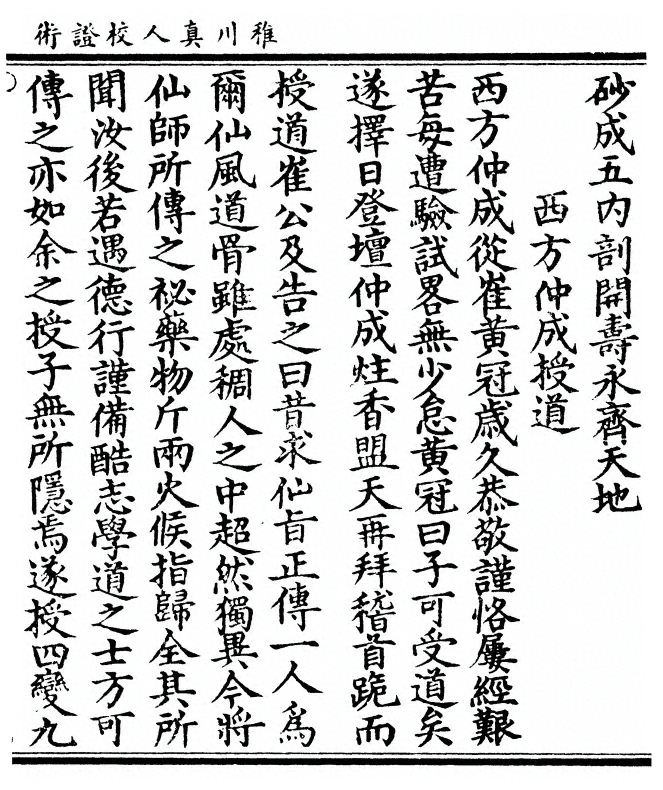 稚川真人校證術
砂成五内剖開壽永齊天地
西方仲成授道
西方仲成從崔黃冠歳久恭敬謹恪屢經艱
苦每遭驗試畧無少怠黃冠曰子可受道矣
遂擇日登壇仲成炷香盟天再拜稽首跪而
授道崔公及告之曰昔求仙旨正傳一人爲
爾仙風道骨雖處稠人之中超然獨異今將
仙師所傳之祕藥物斤兩火候指歸全其所
聞汝後若遇德行謹備酷志學道之士方可
傳之亦如余之授子無所隱焉遂授四變九